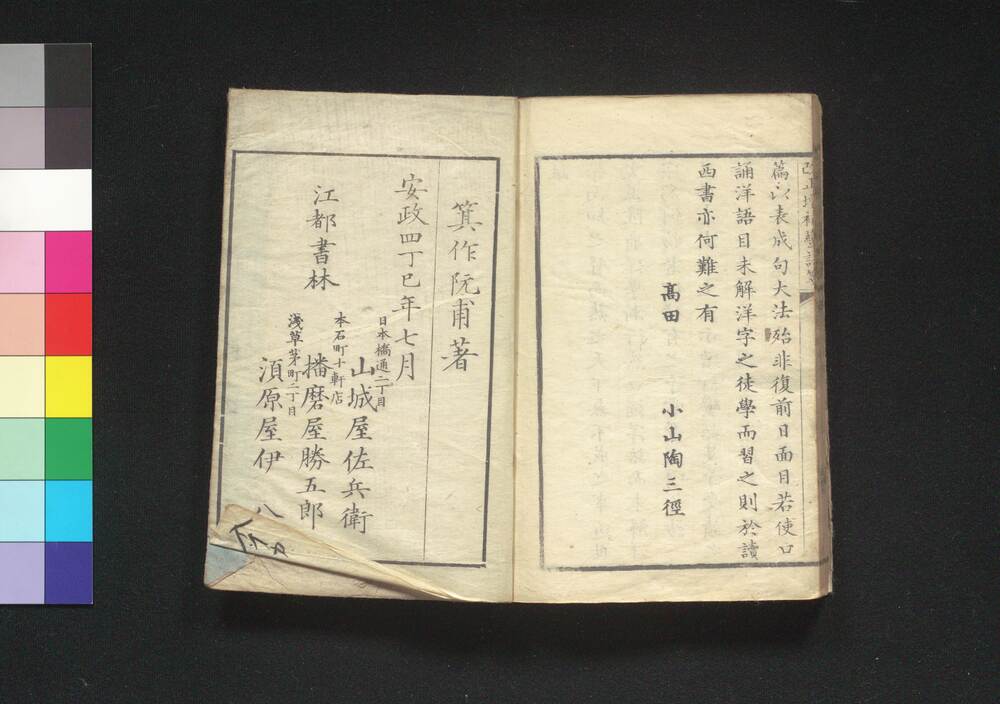 篇以表成句大法殆非復前日面目若使口
誦洋語目未解洋字之徒學而習之則於讀
西書亦何難之有
高田 小山陶三徑
箕作阮甫著
安政四丁巳年七月
江都書林
日本橋通二丁目
山城屋佐兵衛
本石町十軒店
播磨屋勝五郎
淺草茅町二丁目
須原屋伊八